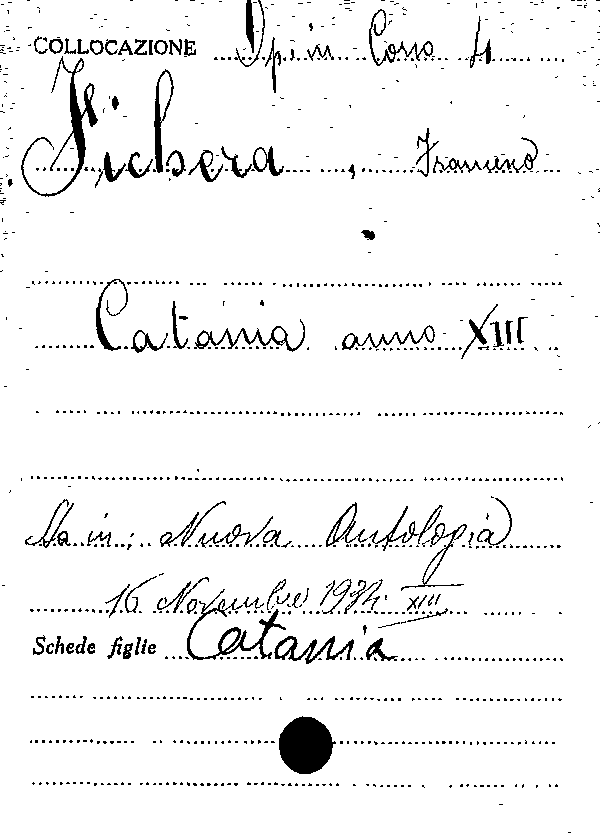 COLLOCAZIONE Op in Corso 4
Fichera, Francesco
Catania anno XIII
Sta in: Nuova Antologia
16 Novembre 1934. XIII
Schede figlie Catania